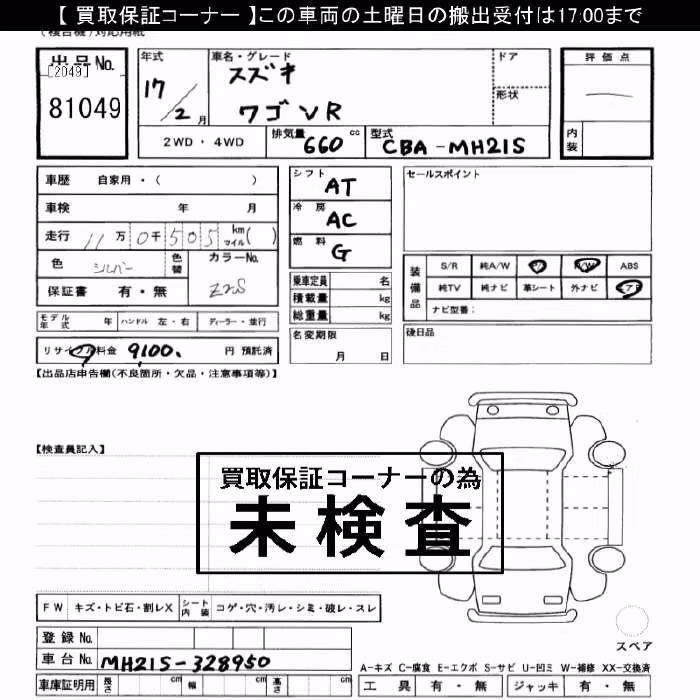 【 買取保証コーナー 】この車両の土曜日の搬出受付は17:00まで
出品No.
[2049]
81049
年式
17/2月
車名・グレード
スズキ
ワゴンR
ドア
形状
評価点
内装
2WD・4WD
排気量 660 cc
型式 CBA-MH21S
車歴 自家用・( )
車検 年 月
走行 11万0千505 km マイル( )
色 シルバー
色替
カラーNo. Z2S
保証書 有・無
シフト AT
冷房 AC
燃料 G
乗車定員 名
積載量 kg
総重量 kg
セールスポイント
装備品
S/R 純A/W P/S P/W ABS
純TV 純ナビ 革シート 外ナビ エアB
ナビ型番:
モデル年式 年 ハンドル 左・右 ディーラー・並行
名変期限 月 日
後日品
リサイクル料金 9100. 円 預託済
【出品店申告欄(不良箇所・欠品・注意事項等)】
【検査員記入】
買取保証コーナーの為
未検査
FW キズ・トビ石・割レX シート内装 コゲ・穴・汚レ・シミ・破レ・スレ
登録No.
車台No. MH21S-328950
スペア
A-キズ C-腐食 E-エクボ S-サビ U-凹ミ W-補修 XX-交換済
車庫証明用 長さ cm 幅 cm 高さ cm
工具 有・無 ジャッキ 有・無